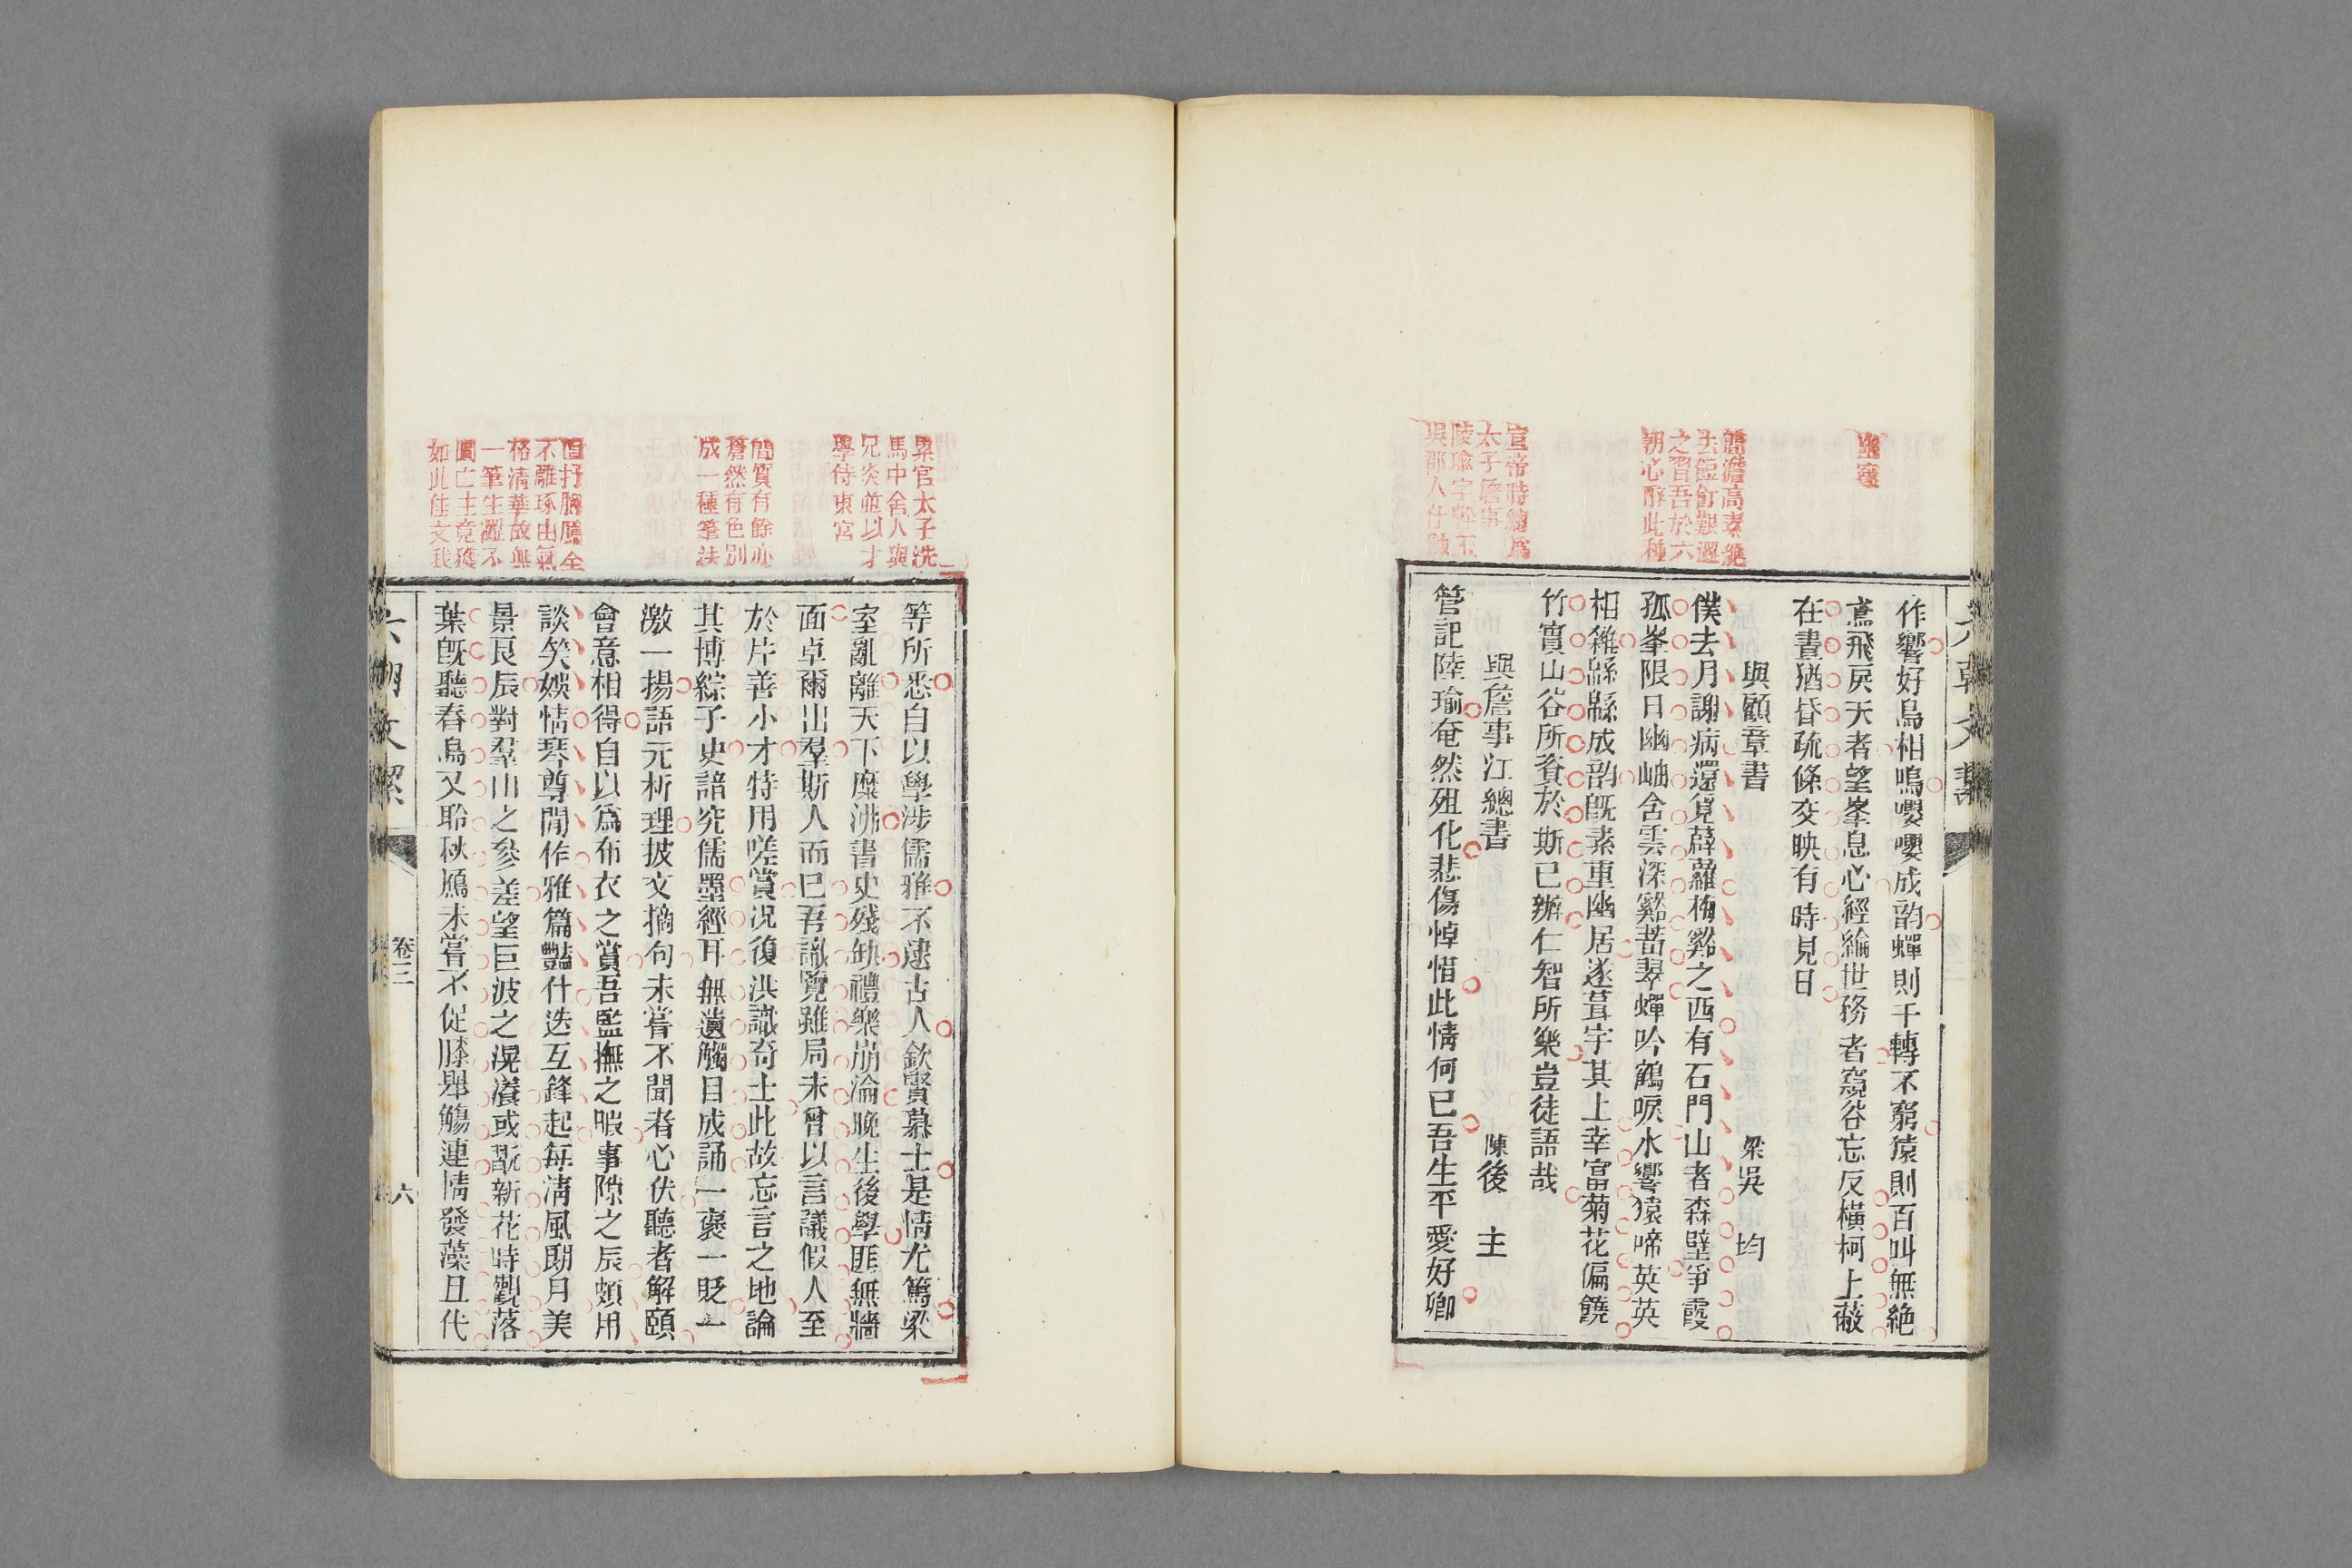 幽窔
簡澹高素絶
去餖飣艱澀
之習吾於六
朝心醉此種
宣帝時總爲
太子詹事
陵瑜字幹玉
吳郡人仕陳
作響好鳥相鳴嚶嚶成韵蟬則千轉不窮猿則百叫無絶
鳶飛戾天者望峯息心經綸世務者窺谷忘反橫柯上蔽
在晝猶昏疏條交映有時見日
與顧章書 梁吳 均
僕去月謝病還覓薜蘿梅谿之西有石門山者森壁爭霞
孤峯限日幽岫含雲深谿蓄翠蟬吟鶴唳水響猿啼英英
相雜緜緜成韵旣素重幽居遂葺宇其上幸富菊花偏饒
竹實山谷所資於斯已辦仁智所樂豈徒語哉
與詹事江總書 陳後 主
管記陸瑜奄然殂化悲傷悼惜此情何已吾生平愛好卿
累官太子洗
馬中舍人與
兄炎竝以才
學侍東宮
簡質有餘亦
蒼然有色別
成一種筆法
直抒胸臆全
不雕琢由氣
格清華故無
一筆生澀不
圖亡主竟獲
如此佳文我
等所悉自以學涉儒雅不逮古人欽賢慕士是情尤篤梁
室亂離天下糜沸書史殘缺禮樂崩淪晚生後學匪無牆
面卓爾出羣斯人而已吾識覽雖局未曾以言議假人至
於片善小才特用嗟賞况復洪識奇士此故忘言之地論
其博綜子史諳究儒墨經耳無遺觸目成誦一褒一貶一
激一揚語元析理披文摘句未嘗不聞者心伏聽者解頤
會意相得自以爲布衣之賞吾監撫之暇事隙之辰頗用
談笑娛情琴尊閒作雅篇豔什迭互鋒起每淸風朗月美
景良辰對羣山之參差望巨波之滉瀁或翫新花時觀落
葉旣聽春鳥又聆秋鴈未嘗不促膝舉觴連情發藻且代
六朝文絜
卷三
六